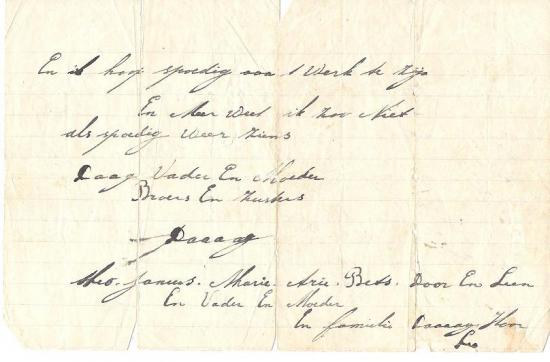 En ik hoop spoedig aan 't Werk te zijn
En Meer Weet ik zoo Niet
als spoedig Weer ziens
Daag Vader En Moeder
Broers En Zusters
Daaag
Theo. Janus. Marie. Arie. Bets. Door En Leen
En Vader En Moeder
En familie Daaaag Hoor
Leo